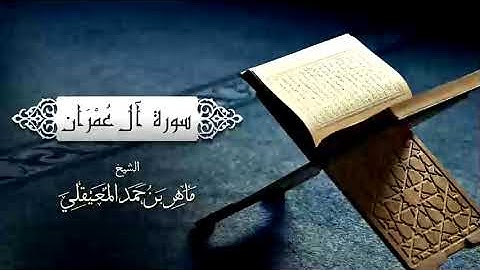 سورة آل عُمْرَان
الشيخ
مَاهِر بْن حَمَد المُعَيْقِلِيّ